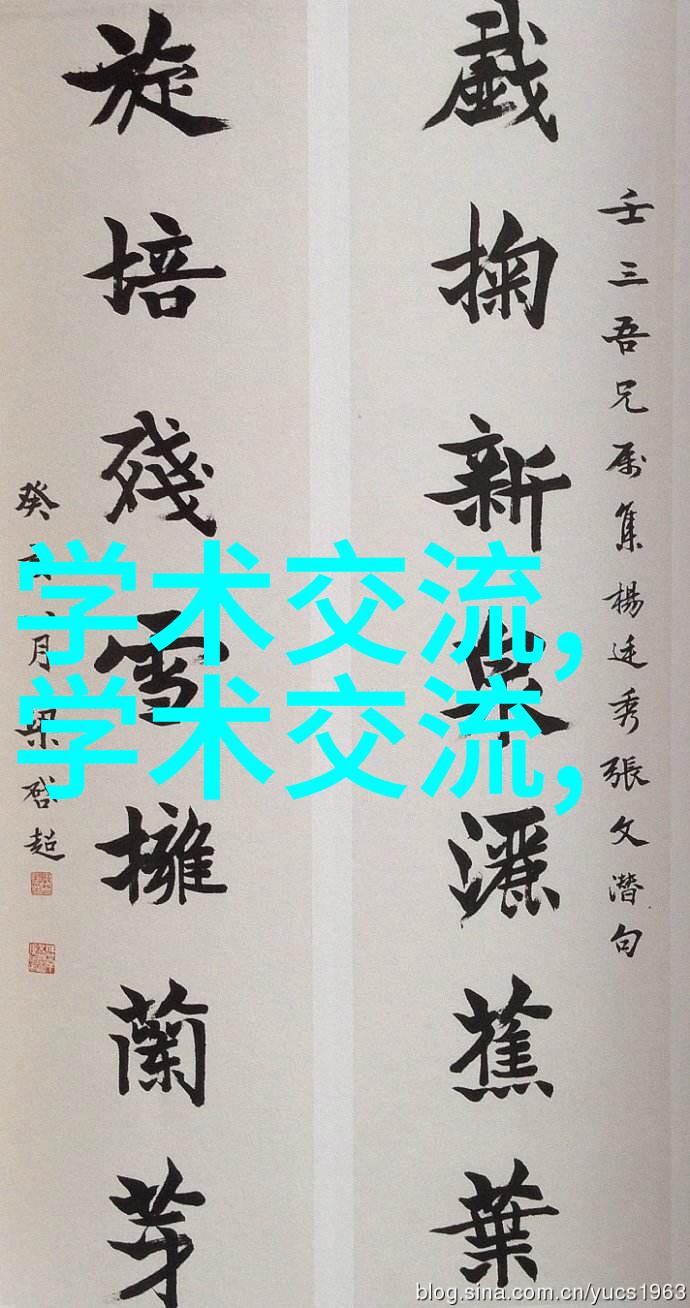 壬三吾兄属集楊廷秀張文潛句
戲掬新泉灑蕉葉
旋培殘雪擁蘭芽
癸 月梁啓超
学术交流,
学术交流,
blog.sina.com.cn/yucs1963